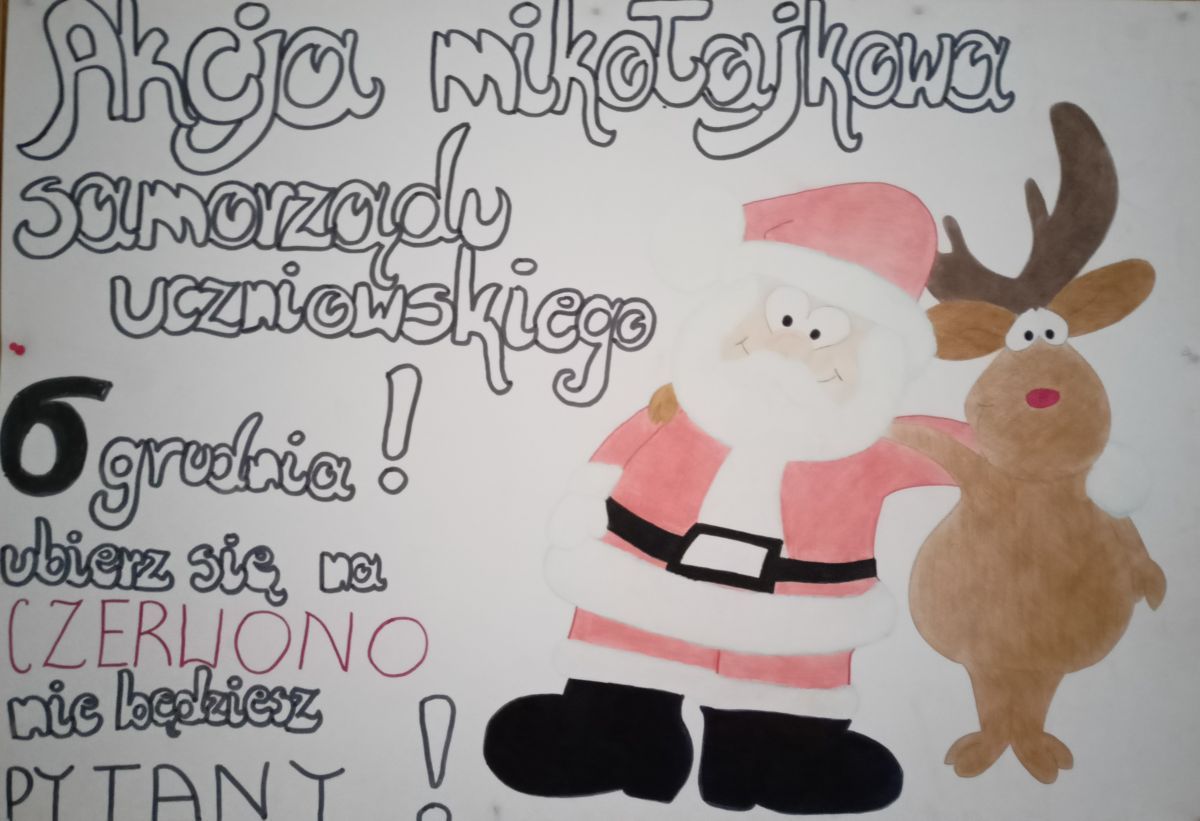 Akcja mikołajkowa
samorządu
uczniowskiego
6 grudnia!
ubierz się na
CZERWONO
nie będziesz
PYTANY!